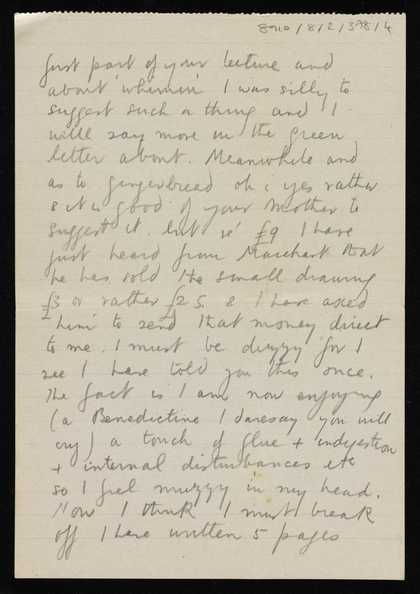 8910/8/2/398/4
first part of your lecture and
about 'wherein' I was silly to
suggest such a thing and I
will say more in the green
letter about. Meanwhile and
as to gingerbread oh: yes rather
& it is good of your mother to
suggest it. but re' £9 I have
just heard from Marchant that
he has sold the small drawing
£3 or rather £2 5. & I have asked
him to send that money direct
to me. I must be dizzy for I
see I have told you this once.
The fact is I am now enjoying
(a Benedictine I daresay you will
cry) a touch of flue + indigestion
+ internal disturbances etc
so I feel muzzy in my head.
Now I think I must break
off I have written 5 pages